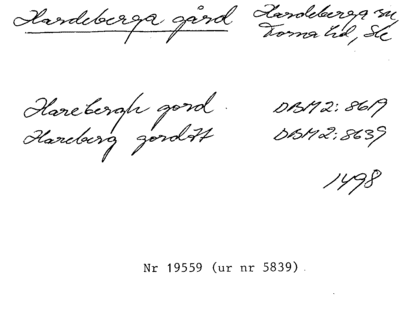 Hardeberga gård Hardeberga sn
Torna hd, Sk
Harebergh gord. DBM2:8619
Hareberg gordtt DBM2:8639
1498
Nr 19559 (ur nr 5839)